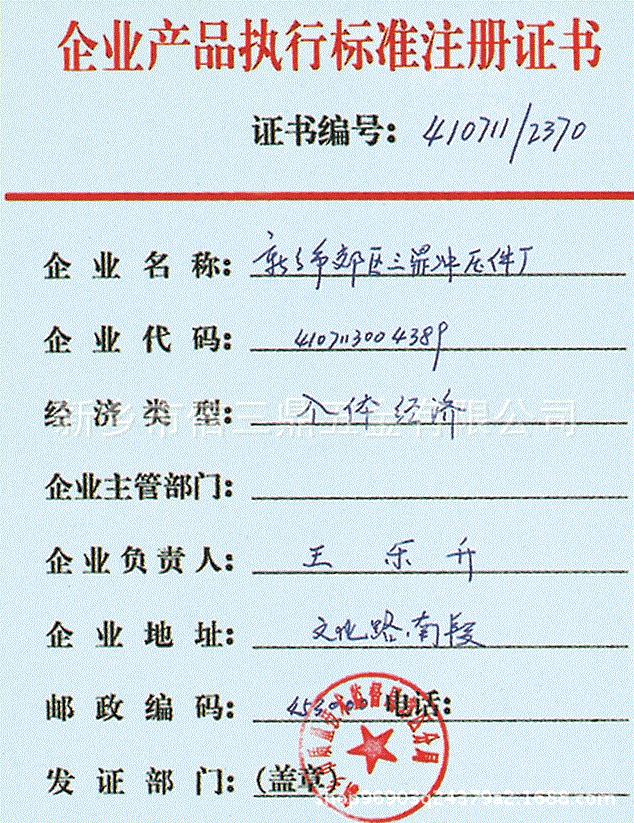 企业产品执行标准注册证书
证书编号：410711/2370
企业名称：新乡市郊区三鼎冲压件厂
企业代码：4107113004389
经济类型：个体经济
新乡市佰三鼎五金有限公司
企业主管部门：
企业负责人：王乐升
企业地址：文化路南段
邮政编码：453000 电话：
发证部门：（盖章）